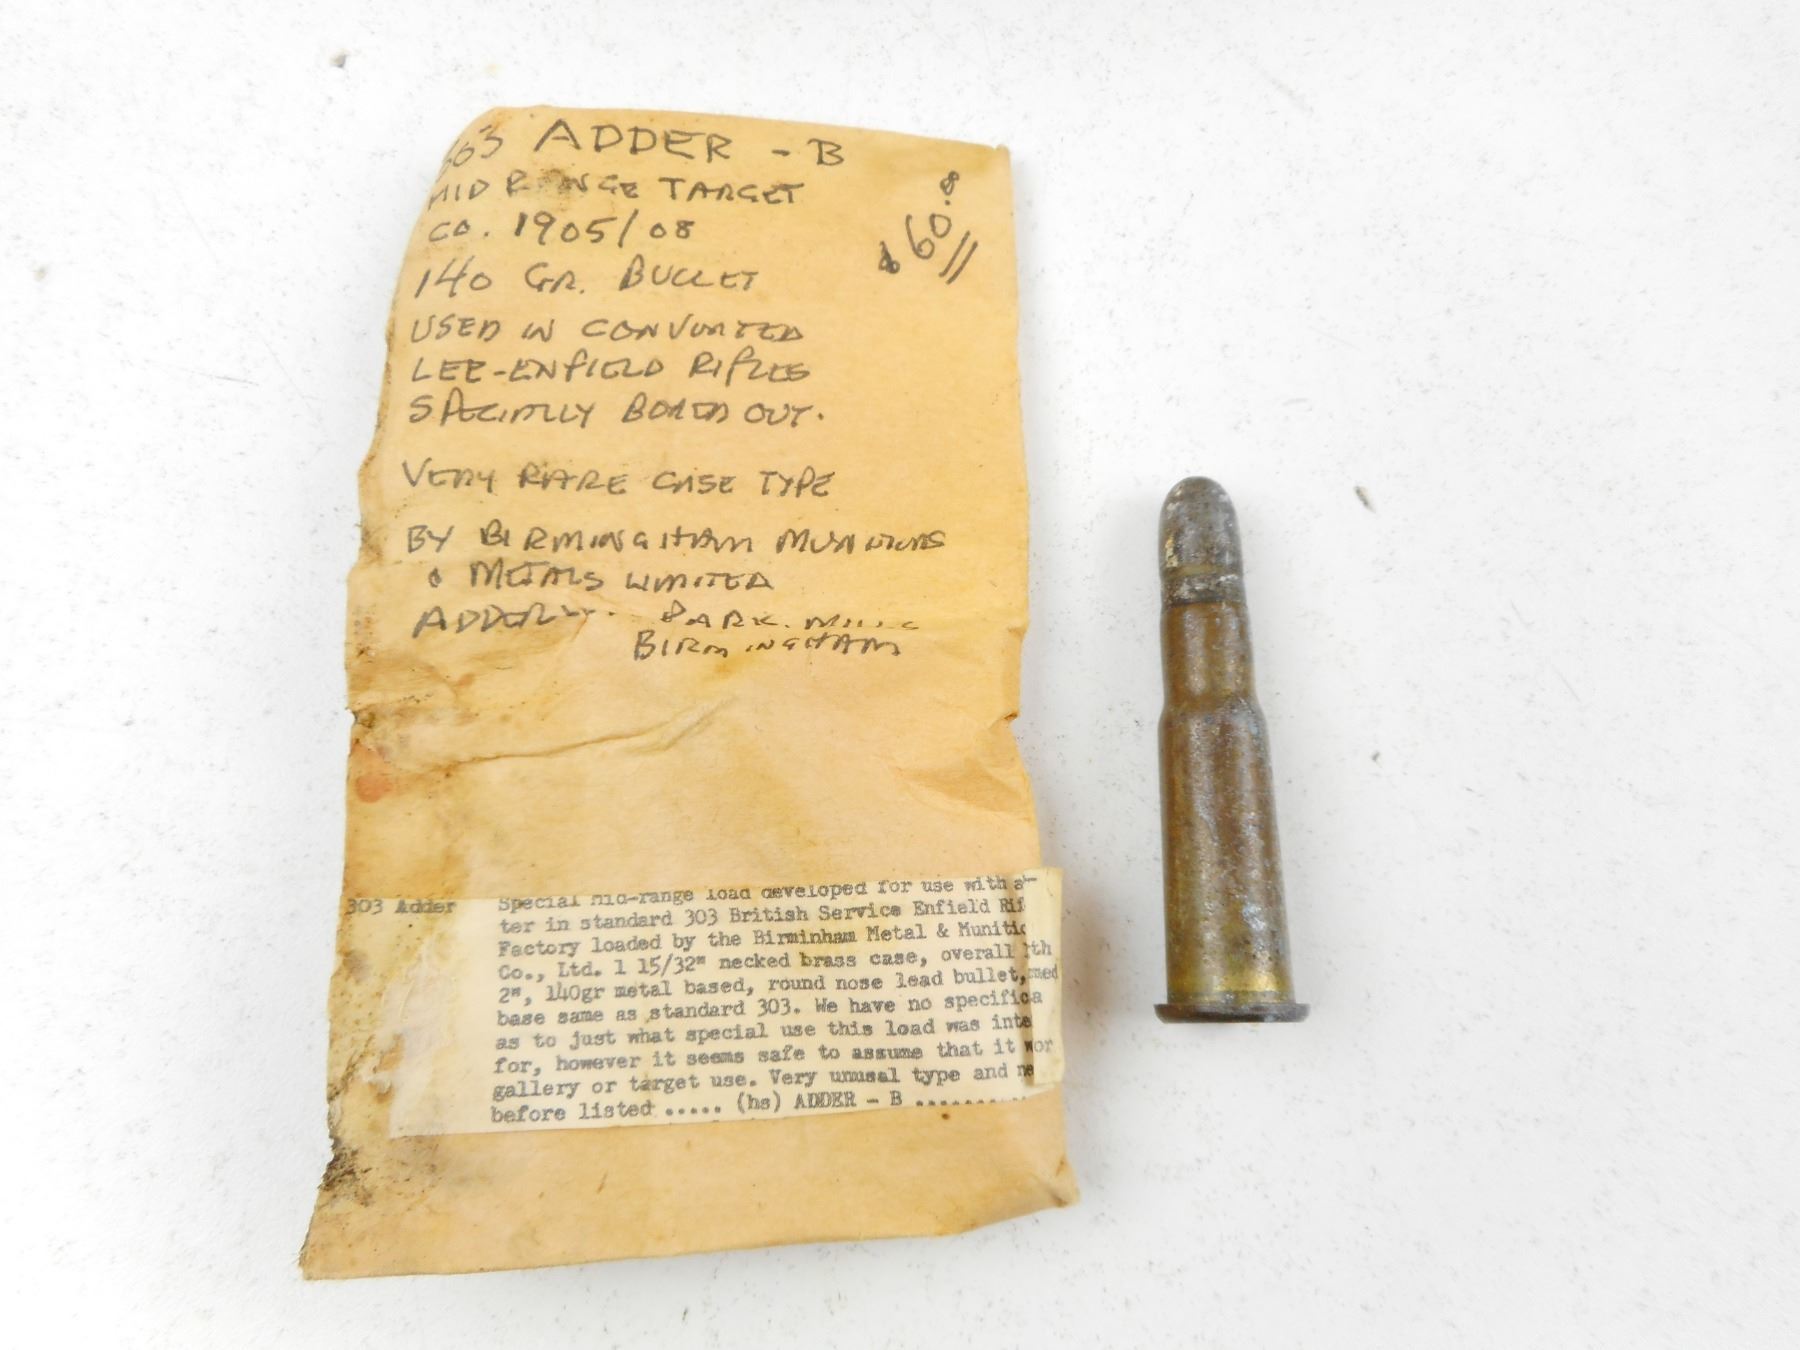 303 ADDER - B
MID RANGE TARGET
CO. 1905/08
140 GR. BULLET
USED IN CONVERTED
LEE-ENFIELD RIFLES
SPECIALLY BORED OUT.
VERY RARE CASE TYPE
BY BIRMINGHAM MUNITIONS
& METALS LIMITED
ADDERLY. PARK. MILLS
BIRMINGHAM
$60
303 Adder
Special mid-range load developed for use with
ter in standard 303 British Service Enfield Rif
Factory loaded by the Birminham Metal & Munitio
Co., Ltd. 1 15/32" necked brass case, overall lth
2", 140gr metal based, round nose lead bullet,
base same as standard 303. We have no specifica
as to just what special use this load was inte
for, however it seems safe to assume that it wor
gallery or target use. Very unusal type and ne
before listed ..... (hs) ADDER - B ..........